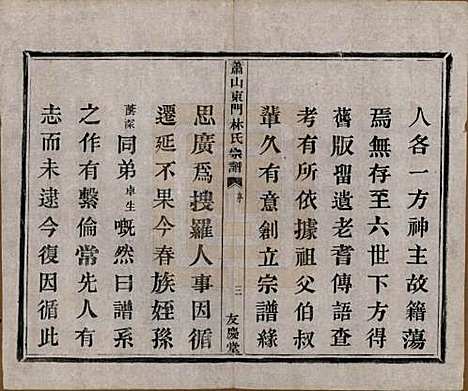 人各一方神主故籍蕩
焉無存至六世下方得
舊版瑠遺老耆傳語查
考有所依據祖父伯叔
輩久有意創立宗譜緣
蕭山東門林氏宗譜
序
三
友慶堂
思廣爲搜羅人事因循
遷延不果今春族姪孫
蔭棠同弟卓生慨然曰譜系
之作有繫倫常先人有
志而未逮今復因循此